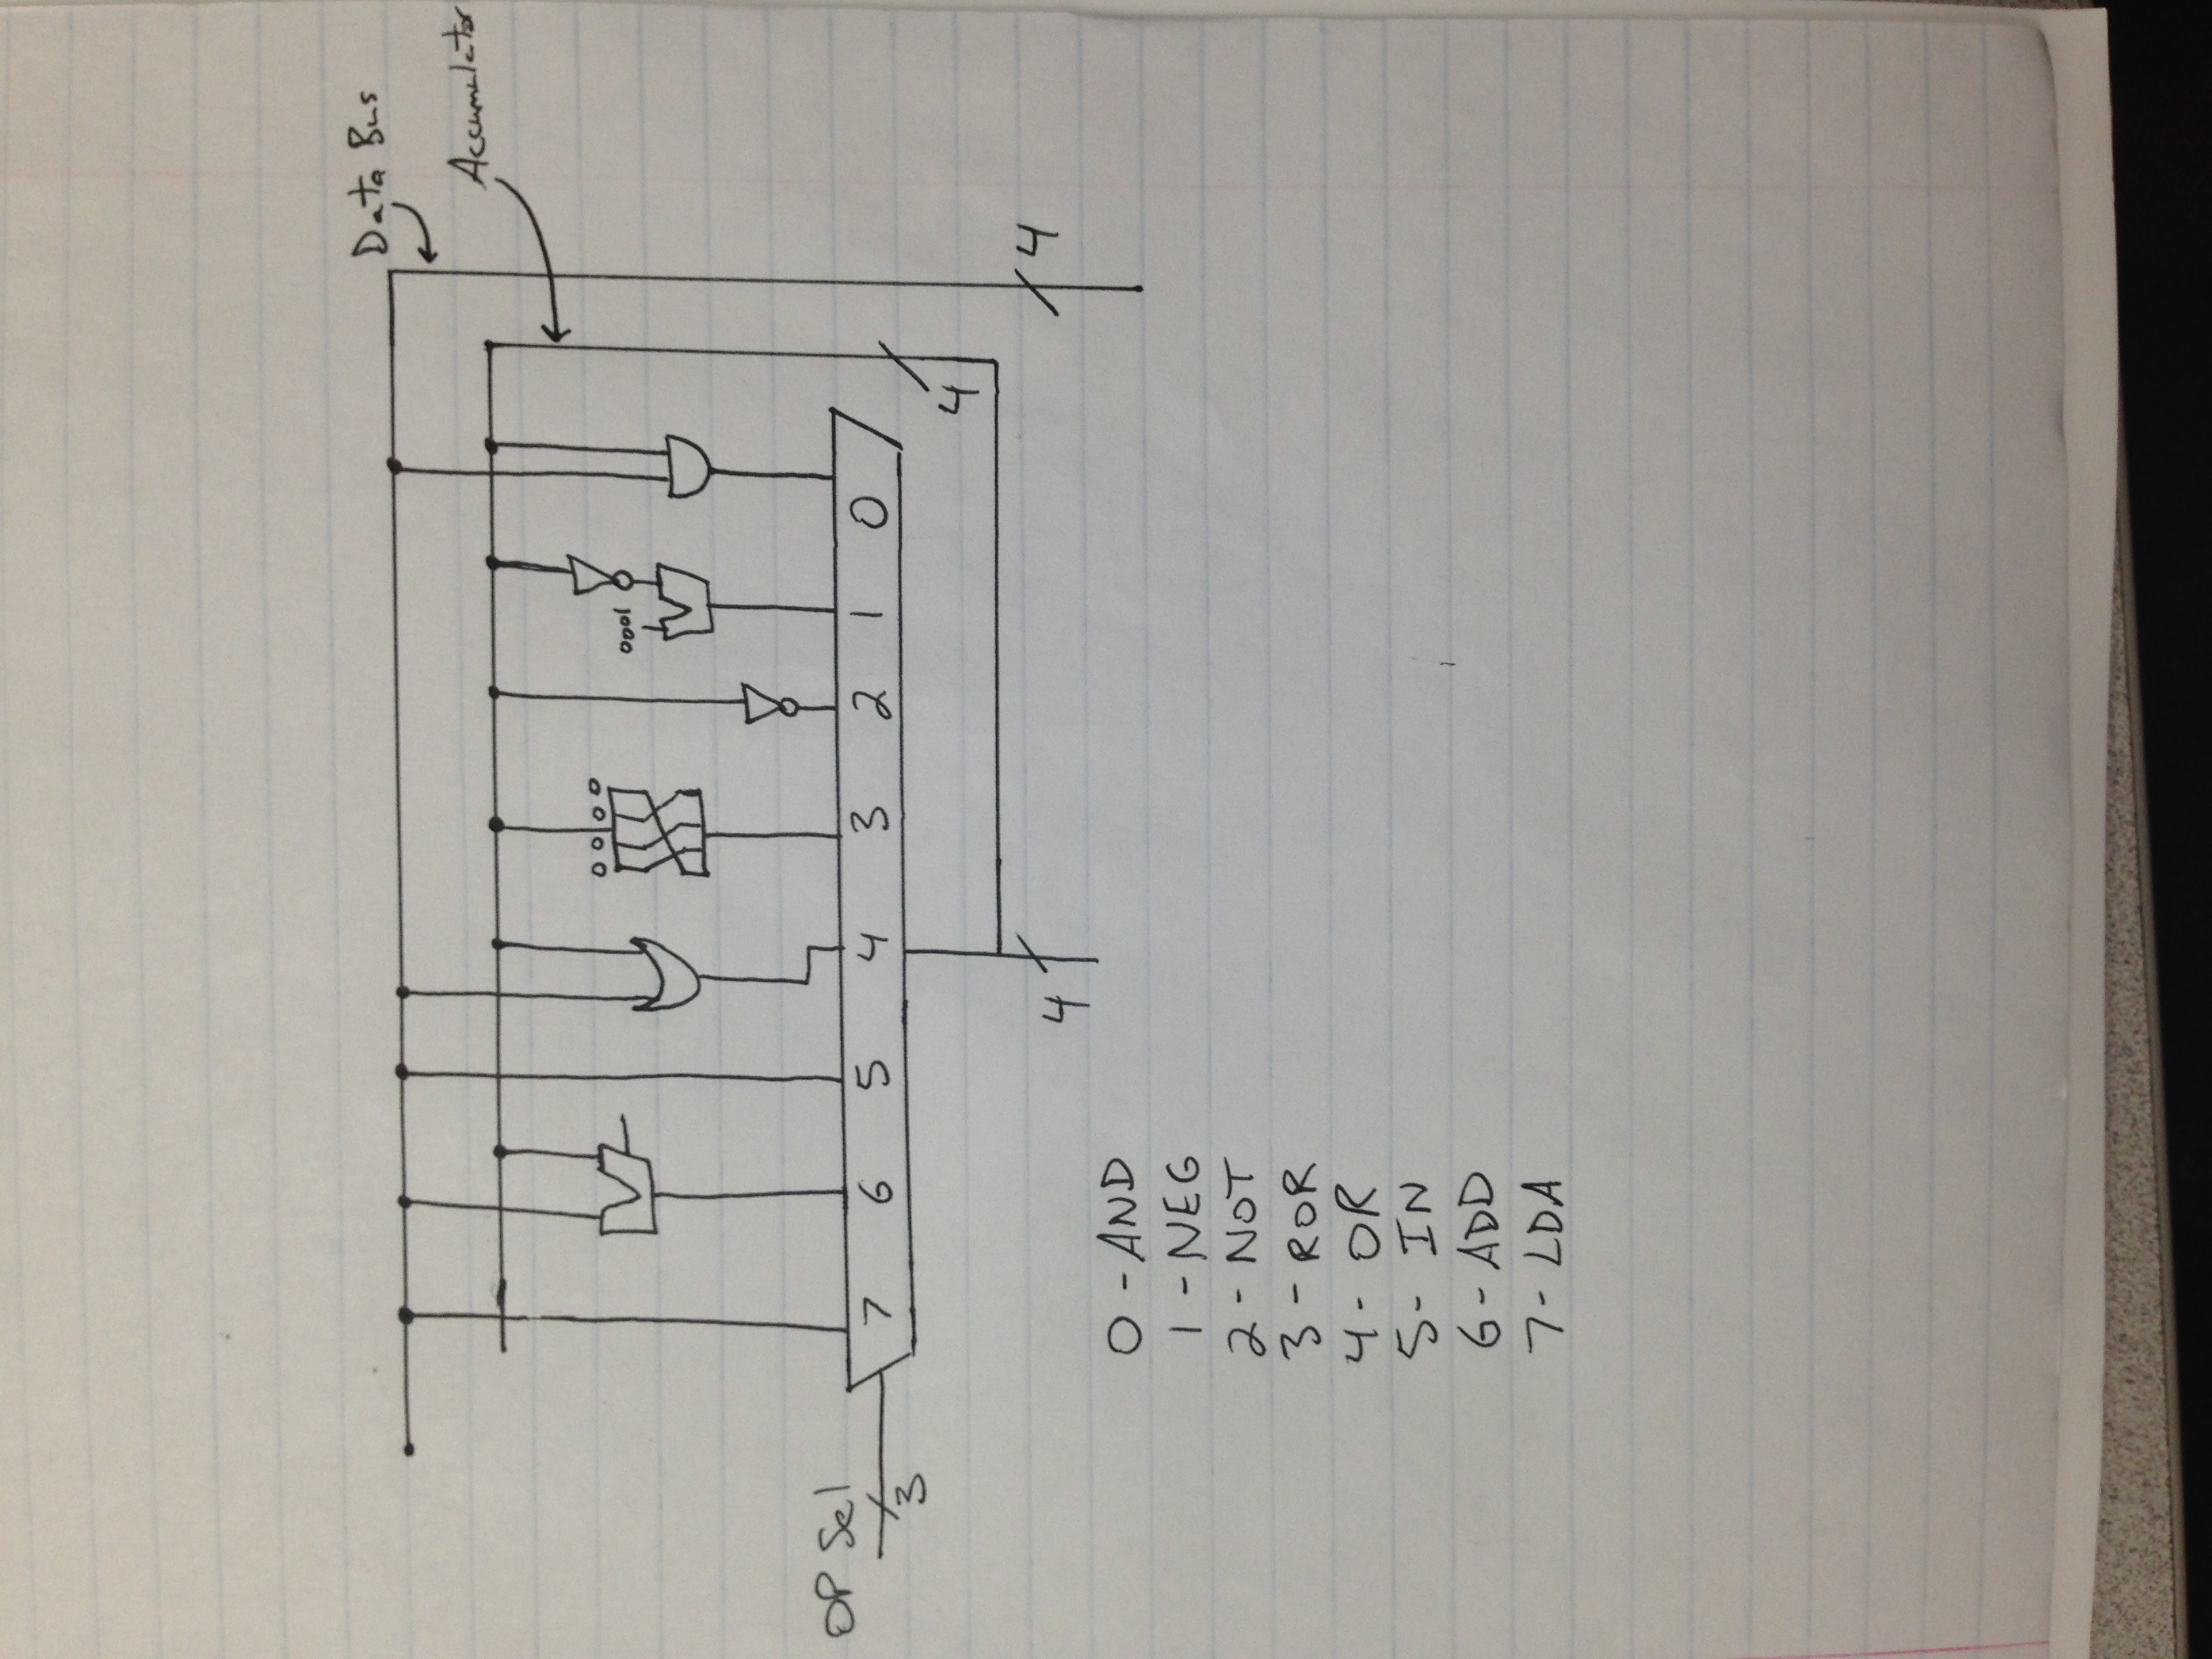 Data Bus
Accumulator
0 0 0 0
0001
OP Sel
3
7 6 5 4 3 2 1 0
4
4
4
0 - AND
1 - NEG
2 - NOT
3 - ROR
4 - OR
5 - IN
6 - ADD
7 - LDA